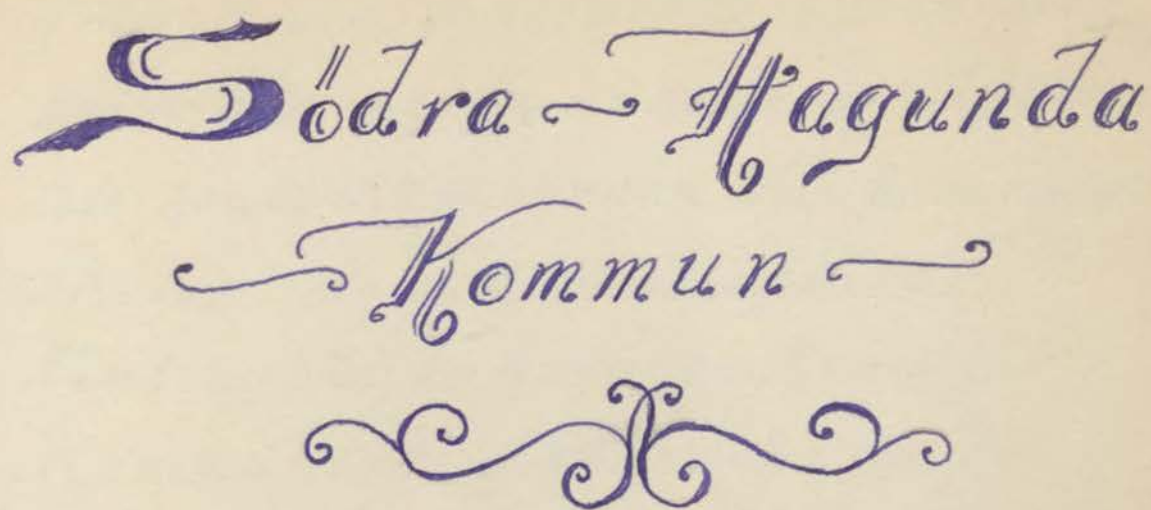 Södra - Hagunda
Kommun